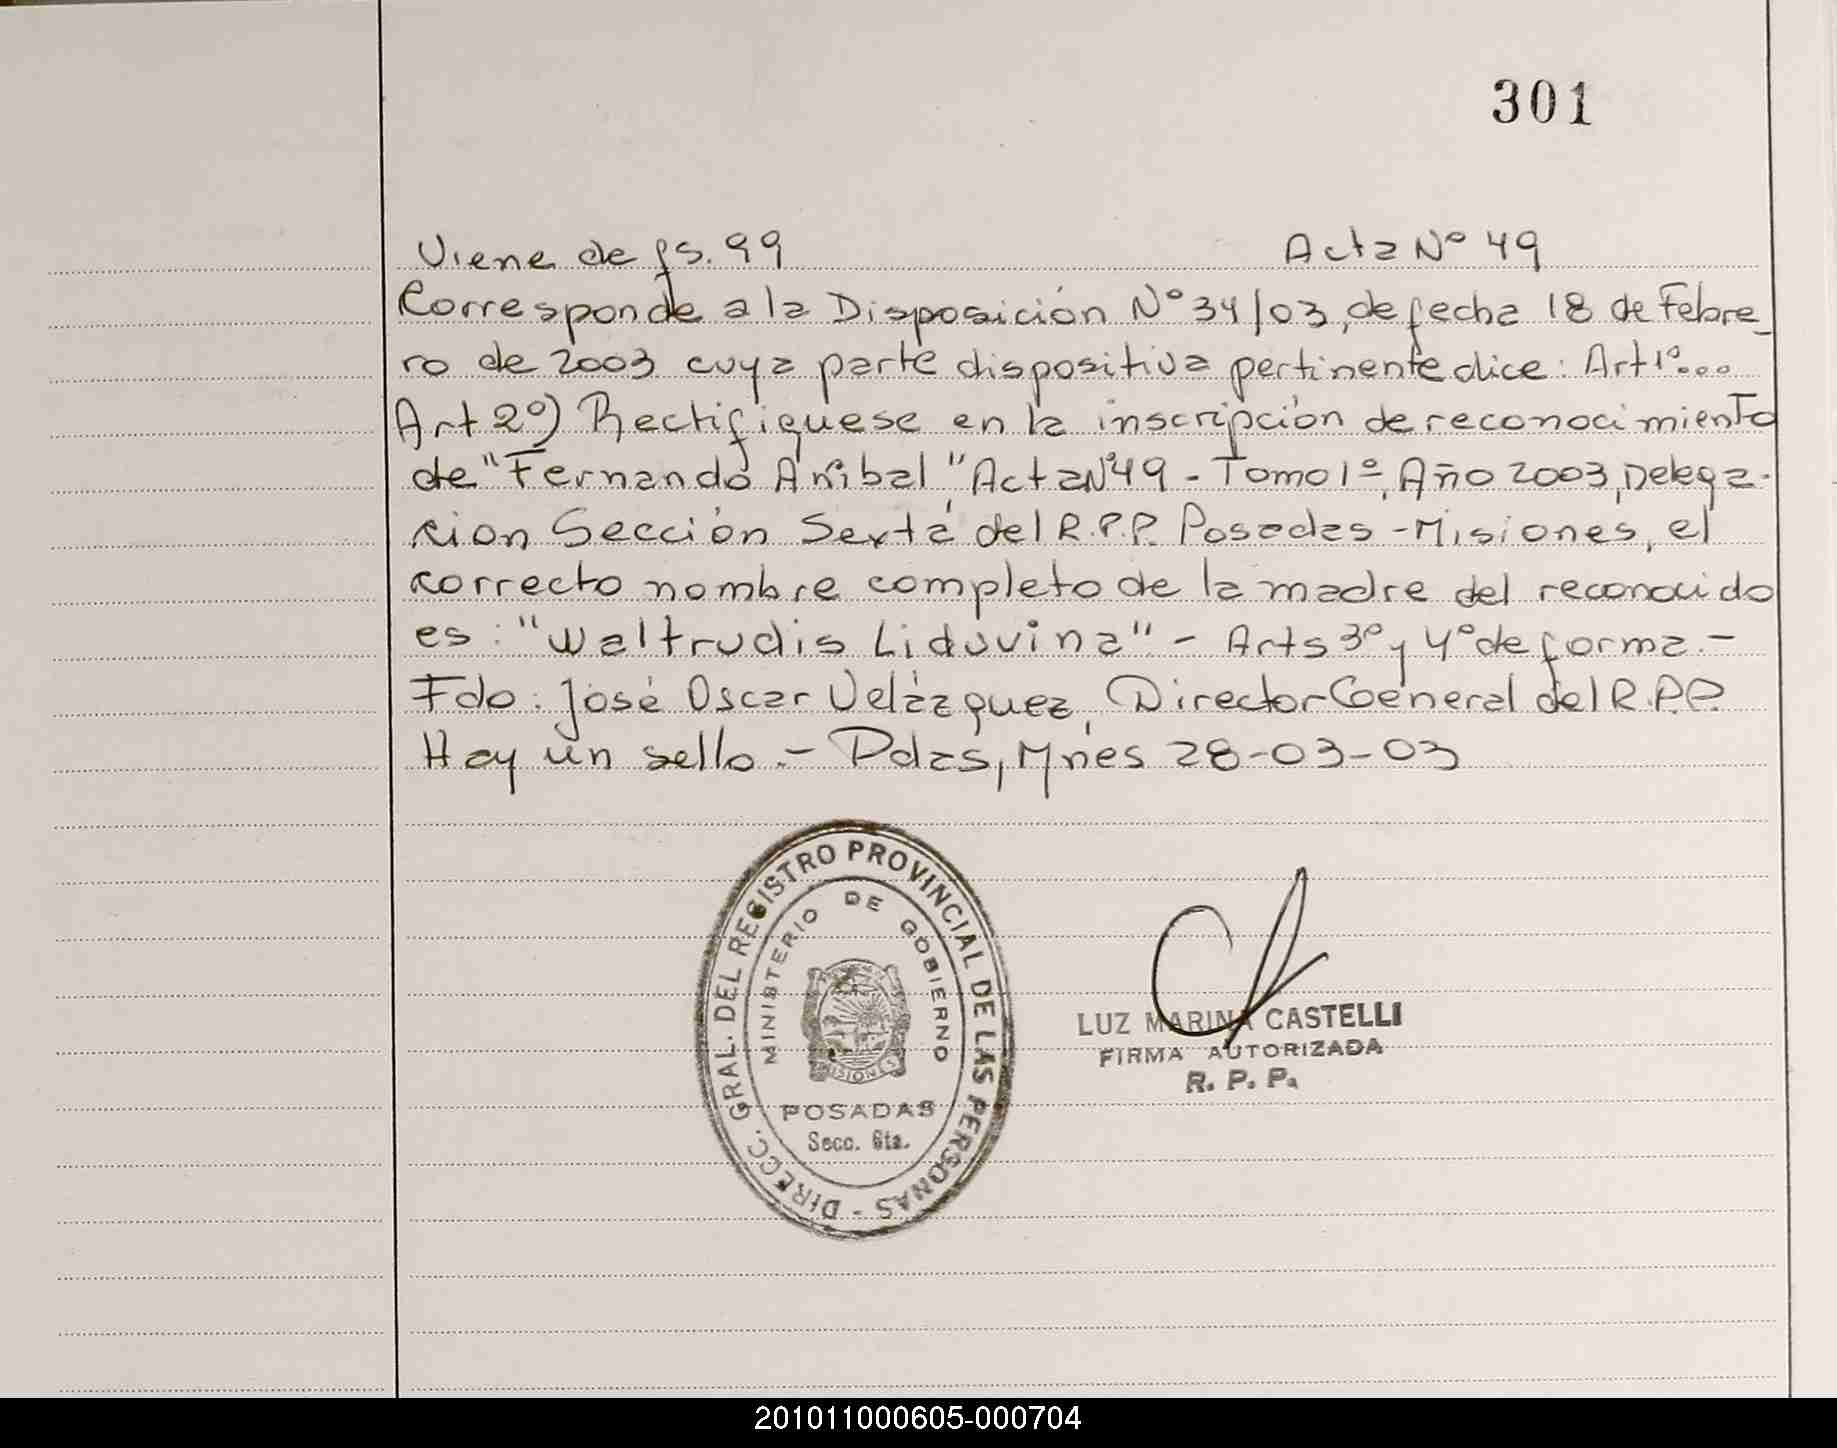 301
Viene de fs. 99 Acta Nº 49
Corresponde a la Disposición Nº 34/03, de fecha 18 de Febre_
ro de 2003 cuya parte dispositiva pertinente dice: Art 1º...
Art 2º) Rectifiquese en la inscripción de reconocimiento
de "Fernando Anibal", Acta Nº49 - Tomo 1º, Año 2003, Delega-
cion Sección Sexta del R.P.P. Posadas - Misiones, el
correcto nombre completo de la madre del reconocido
es: "Waltrudis Liduvina" - Arts 3º y 4º de forma. -
Fdo: José Oscar Velázquez, Director General del R.P.P.
Hay un sello. - Pdas, Mnes 28-03-03
DIRECC. GRAL. DEL REGISTRO PROVINCIAL DE LAS PERSONAS -
MINISTERIO DE GOBIERNO
MISIONES
POSADAS
Secc. 6ta.
LUZ MARINA CASTELLI
FIRMA AUTORIZADA
R. P. P.
201011000605-000704